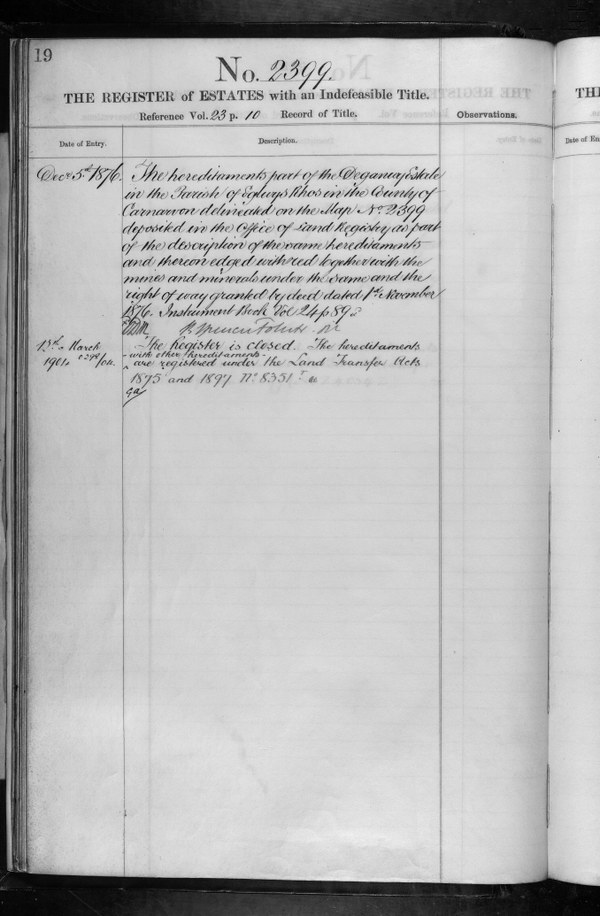 19
No. 2399.
THE REGISTER of ESTATES with an Indefeasible Title.
Reference Vol. 23 p. 10 Record of Title.
Observations.
Date of Entry.
Description.
Decr 5th 1876.
The hereditaments part of the Deganwy Estate
in the Parish of Eglwys Rhos in the County of
Carnarvon delineated on the Map No 2399
deposited in the Office of Land Registry as part
of the description of the same hereditaments
and thereon edged with red together with the
mines and minerals under the same and the
right of way granted by deed dated 1st November
1876. Instrument Book Vol 24 p 89
13th March
1901.
The Register is closed. The hereditaments
with other hereditaments
are registered under the Land Transfer Acts
1875 and 1897 No 8351
THE
Date of En